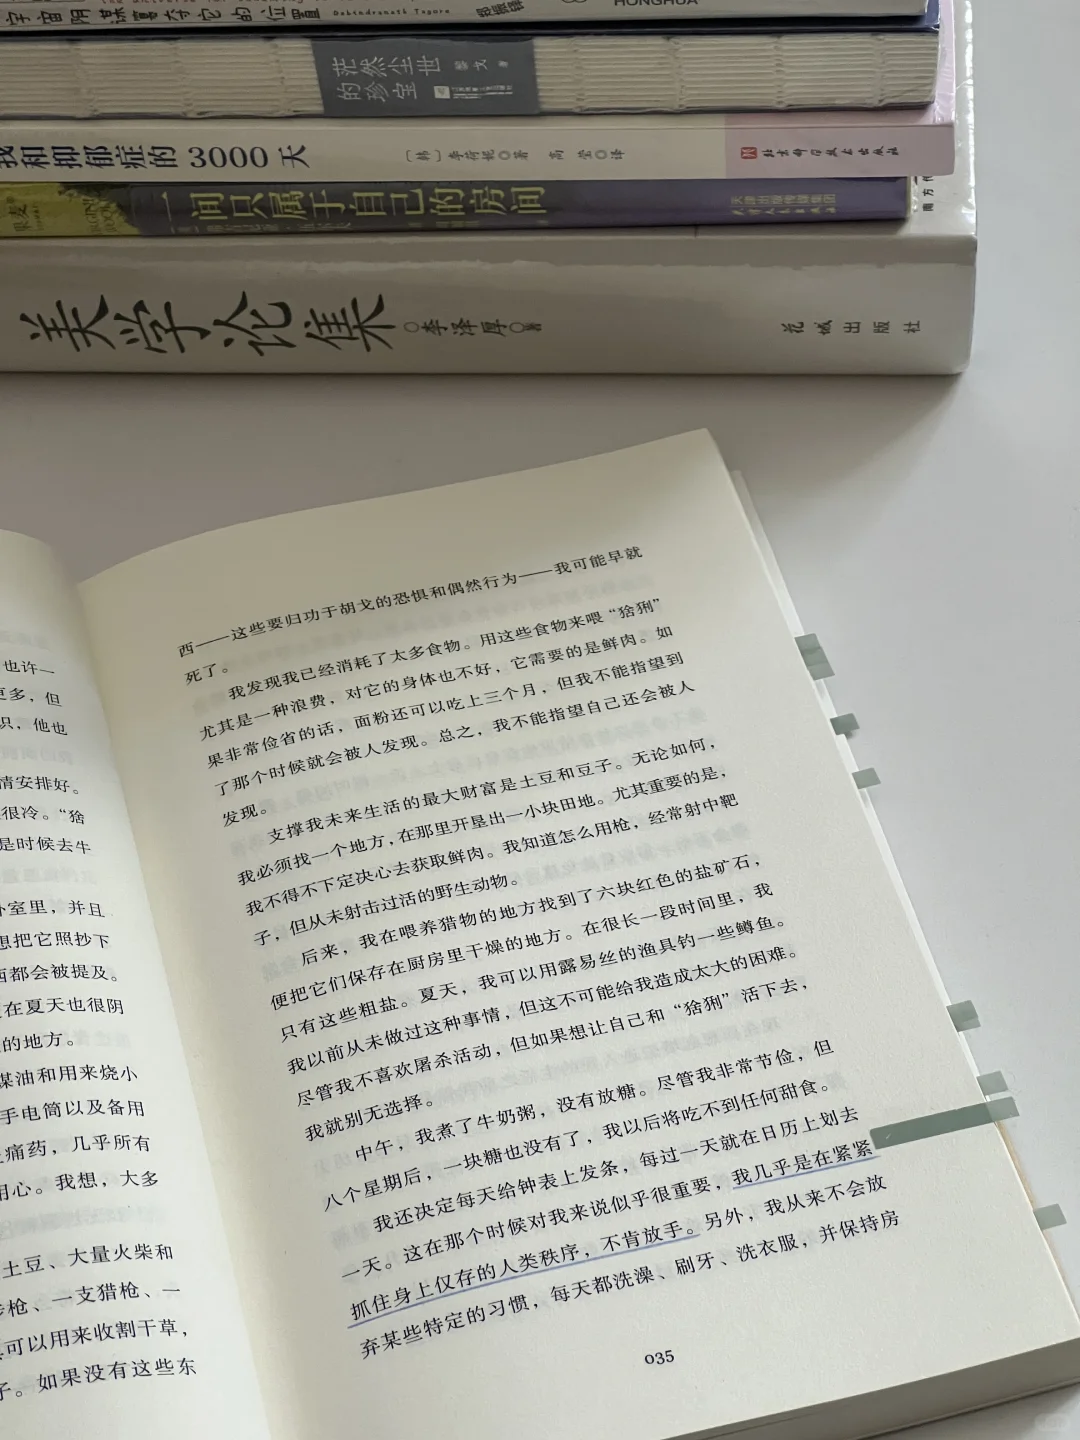 宇宙阴谋富于它的位置
Rabindranath Tagore
HONGHUA
茫然尘世
的珍宝
黎戈 著
我和抑郁症的 3000 天
〔韩〕李荷妮◎著 高莹◎译
北京科学技术出版社
果麦
一间只属于自己的房间
天津出版传媒集团
天津人民出版社
南方
美学论集
○李泽厚○著
花城出版社
也许一
更多，但
识，他也
情安排好。
很冷。“猞
是时候去牛
卧室里，并且
想把它照抄下
西都会被提及。
在夏天也很阴
的地方。
煤油和用来烧小
手电筒以及备用
止痛药，几乎所有
用心。我想，大多
土豆、大量火柴和
步枪、一支猎枪、一
可以用来收割干草，
子。如果没有这些东
西——这些要归功于胡戈的恐惧和偶然行为——我可能早就
死了。
我发现我已经消耗了太多食物。用这些食物来喂“猞猁”
尤其是一种浪费，对它的身体也不好，它需要的是鲜肉。如
果非常俭省的话，面粉还可以吃上三个月，但我不能指望到
了那个时候就会被人发现。总之，我不能指望自己还会被人
发现。
支撑我未来生活的最大财富是土豆和豆子。无论如何，
我必须找一个地方，在那里开垦出一小块田地。尤其重要的是，
我不得不下定决心去获取鲜肉。我知道怎么用枪，经常射中靶
子，但从未射击过活的野生动物。
后来，我在喂养猎物的地方找到了六块红色的盐矿石，
便把它们保存在厨房里干燥的地方。在很长一段时间里，我
只有这些粗盐。夏天，我可以用露易丝的渔具钓一些鳟鱼。
我以前从未做过这种事情，但这不可能给我造成太大的困难。
尽管我不喜欢屠杀活动，但如果想让自己和“猞猁”活下去，
我就别无选择。
中午，我煮了牛奶粥，没有放糖。尽管我非常节俭，但
八个星期后，一块糖也没有了，我以后将吃不到任何甜食。
我还决定每天给钟表上发条，每过一天就在日历上划去
一天。这在那个时候对我来说似乎很重要，我几乎是在紧紧
抓住身上仅存的人类秩序，不肯放手。另外，我从来不会放
弃某些特定的习惯，每天都洗澡、刷牙、洗衣服，并保持房
035